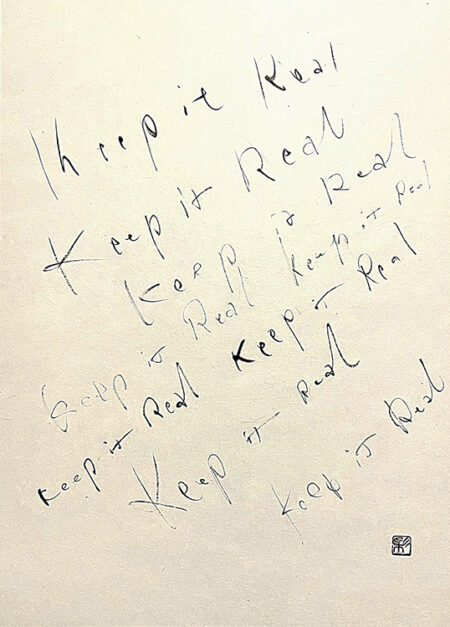 Keep it Real
Keep it Real
Keep it Real
Keep it Real Keep it Real
Keep it Real Keep it Real
Keep it Real
Keep it Real